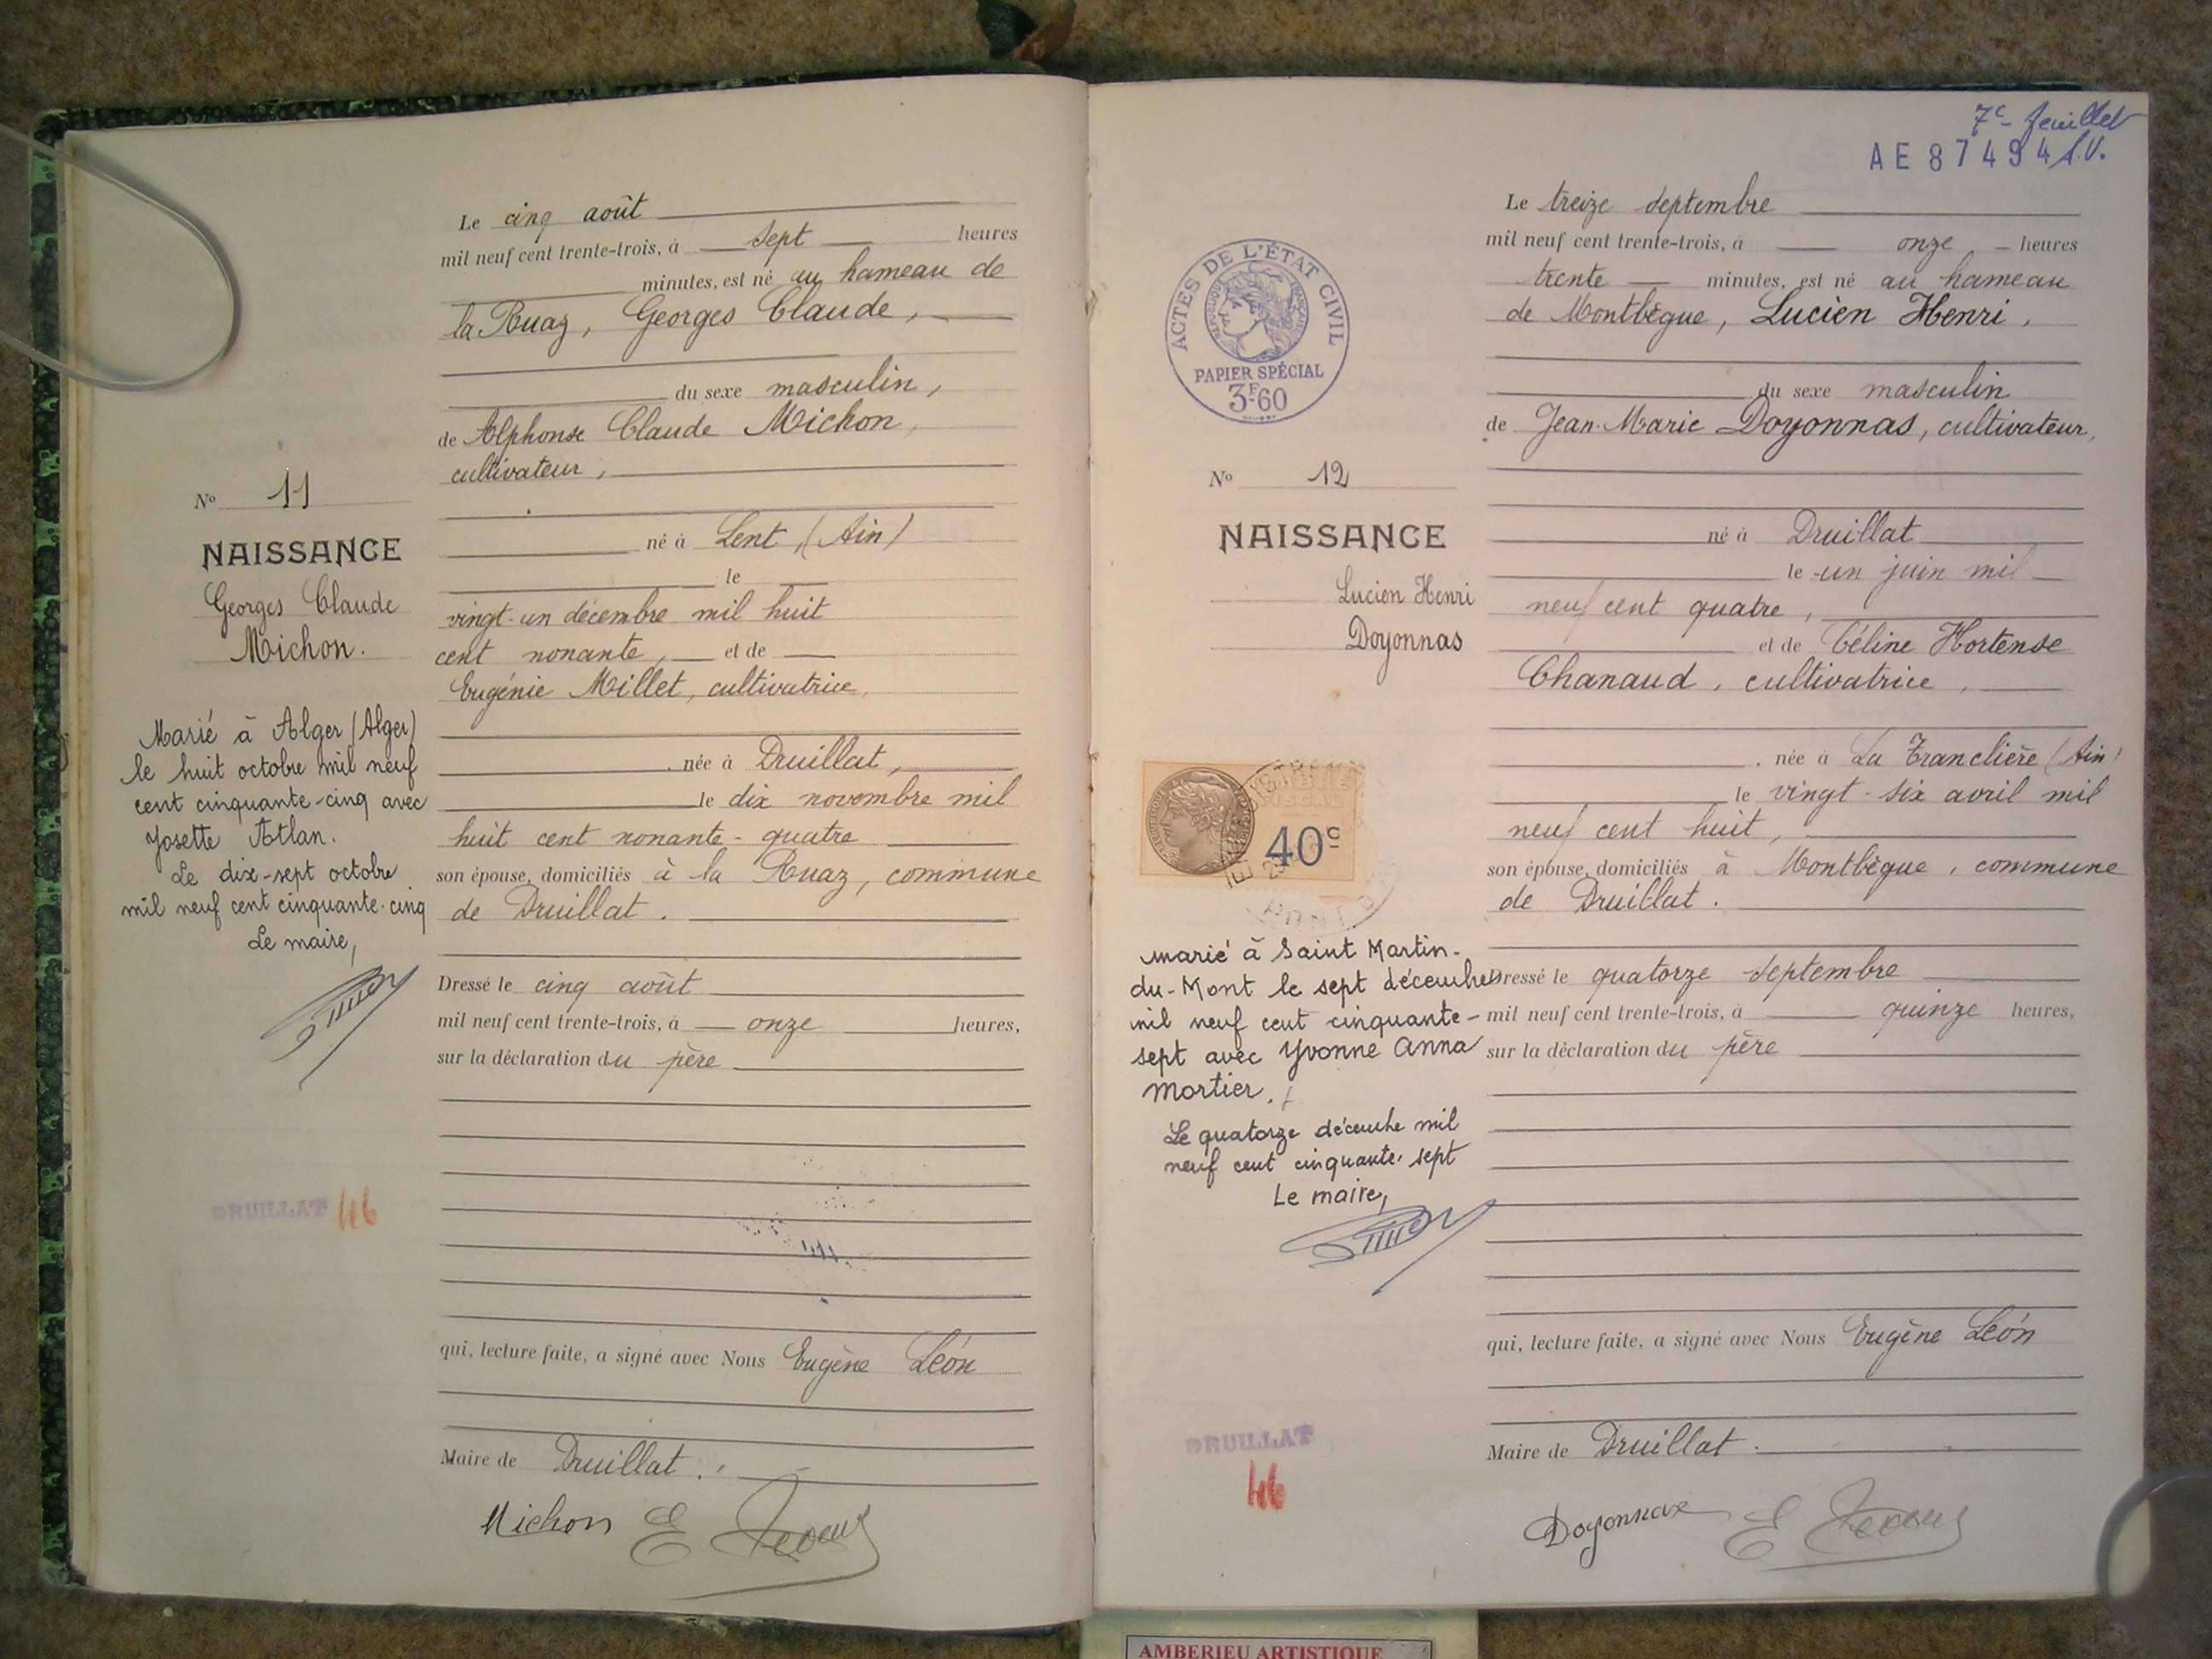 Le cinq août
mil neuf cent trente-trois, à sept heures
minutes, est né au hameau de
la Ruaz, Georges Claude,
du sexe masculin,
de Alphonse Claude Michon,
cultivateur,
né à Lent, (Ain)
le
vingt-un décembre mil huit
cent nonante, et de
Eugénie Millet, cultivatrice,
née à Druillat,
le dix novembre mil
huit cent nonante-quatre
son épouse, domiciliés à la Ruaz, commune
de Druillat.
Dressé le cinq août
mil neuf cent trente-trois, à onze heures,
sur la déclaration du père
qui, lecture faite, a signé avec Nous Eugène Léon
Maire de Druillat.
Michon E
No 11
NAISSANCE
Georges Claude
Michon.
Marié à Alger (Alger)
le huit octobre mil neuf
cent cinquante-cinq avec
Josette Atlan.
Le dix-sept octobre
mil neuf cent cinquante-cinq
Le maire,
DRUILLAT 46
7e feuillet
AE 87494
Le treize septembre
mil neuf cent trente-trois, à onze heures
trente minutes, est né au hameau
de Montbègue, Lucien Henri,
du sexe masculin
de Jean-Marie Doyonnas, cultivateur,
né à Druillat
le un juin mil
neuf cent quatre,
et de Céline Hortense
Chanaud, cultivatrice,
née à La Tranclière (Ain)
le vingt-six avril mil
neuf cent huit,
son épouse, domiciliés à Montbègue, commune
de Druillat.
Dressé le quatorze septembre
mil neuf cent trente-trois, à quinze heures,
sur la déclaration du père
qui, lecture faite, a signé avec Nous Eugène Léon
Maire de Druillat.
Doyonnax E
ACTES DE L'ÉTAT CIVIL
RÉPUBLIQUE FRANÇAISE
PAPIER SPÉCIAL
3F60
No 12
NAISSANCE
Lucien Henri
Doyonnas
40c
marié à Saint Martin-
du-Mont le sept décembre
mil neuf cent cinquante-
sept avec Yvonne Anna
Mortier.
Le quatorze décembre mil
neuf cent cinquante-sept
Le maire,
DRUILLAT
46
AMBERIEU ARTISTIQUE